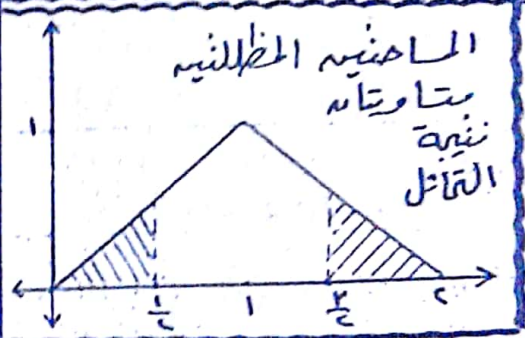 المساحتين المظللتين
متساويتان
نتيجة
التماثل
١
١/٢ ١ ٣/٢ ٢